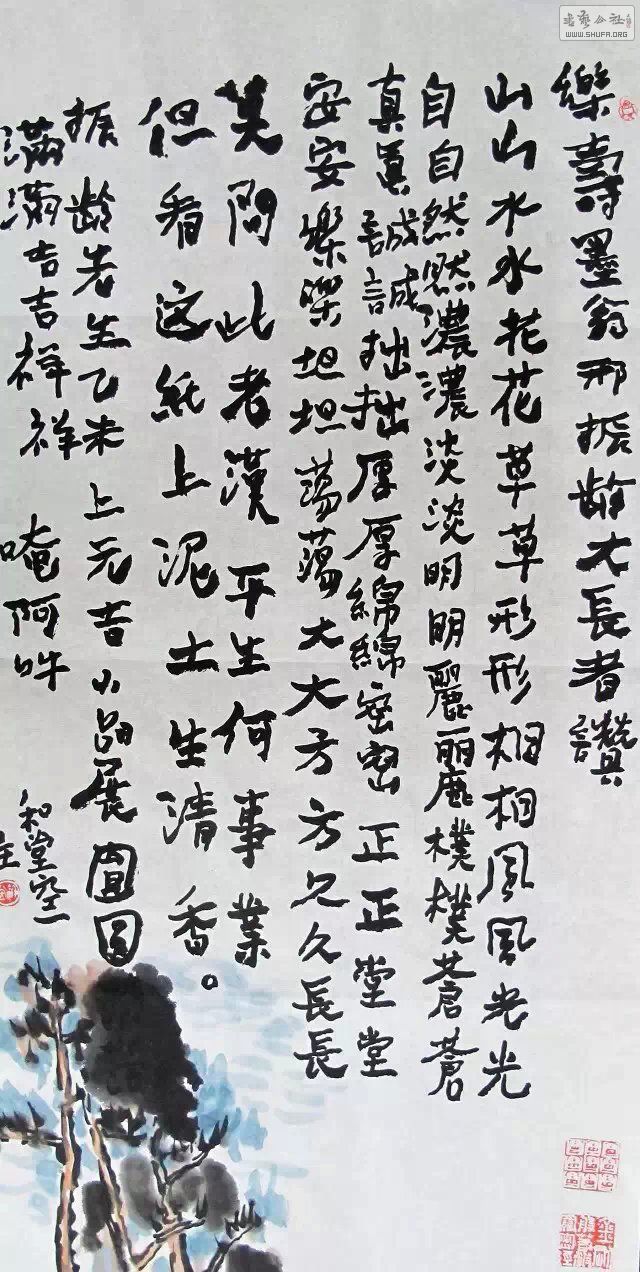 樂壽墨翁邢振齡大長者讚
山山水水花花草草形形相相風風光光
自自然然濃濃淡淡明明麗麗樸樸蒼蒼
真真誠誠拙拙厚厚綿綿密密正正堂堂
安安樂樂坦坦蕩蕩大大方方久久長長
莫問此老漢平生何事業
但看这紙上泥土生清香。
振齡老生乙未上元吉小品展圓圓
滿滿吉吉祥祥 唵阿吽
和堂空一
書藝公社
WWW.SHUFA.ORG